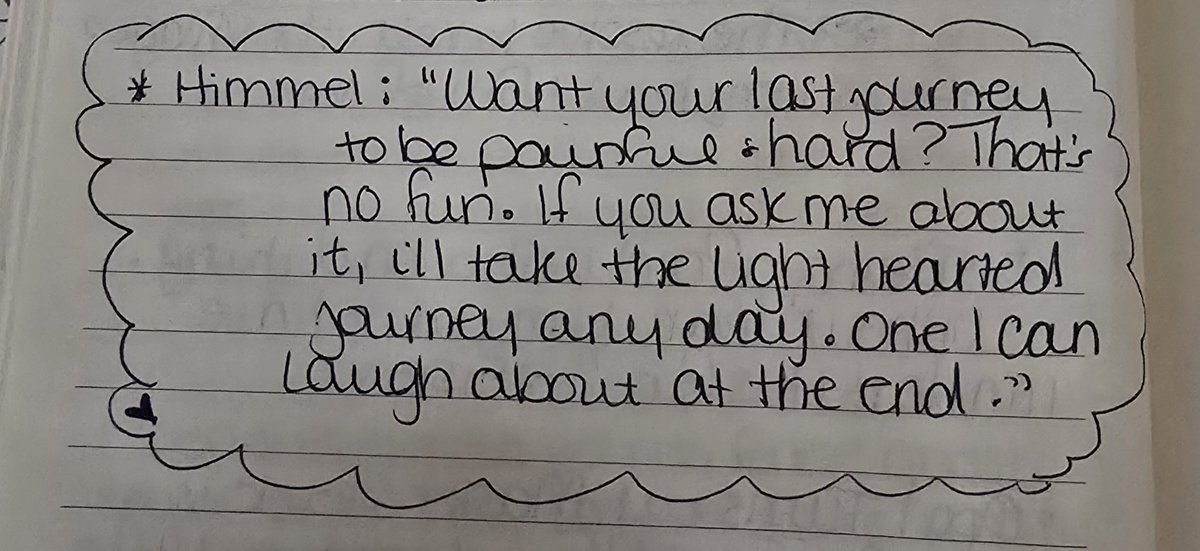 * Himmel: "Want your last journey
to be painful & hard? That's
no fun. If you ask me about
it, ill take the light hearted
journey any day. One I can
laugh about at the end."